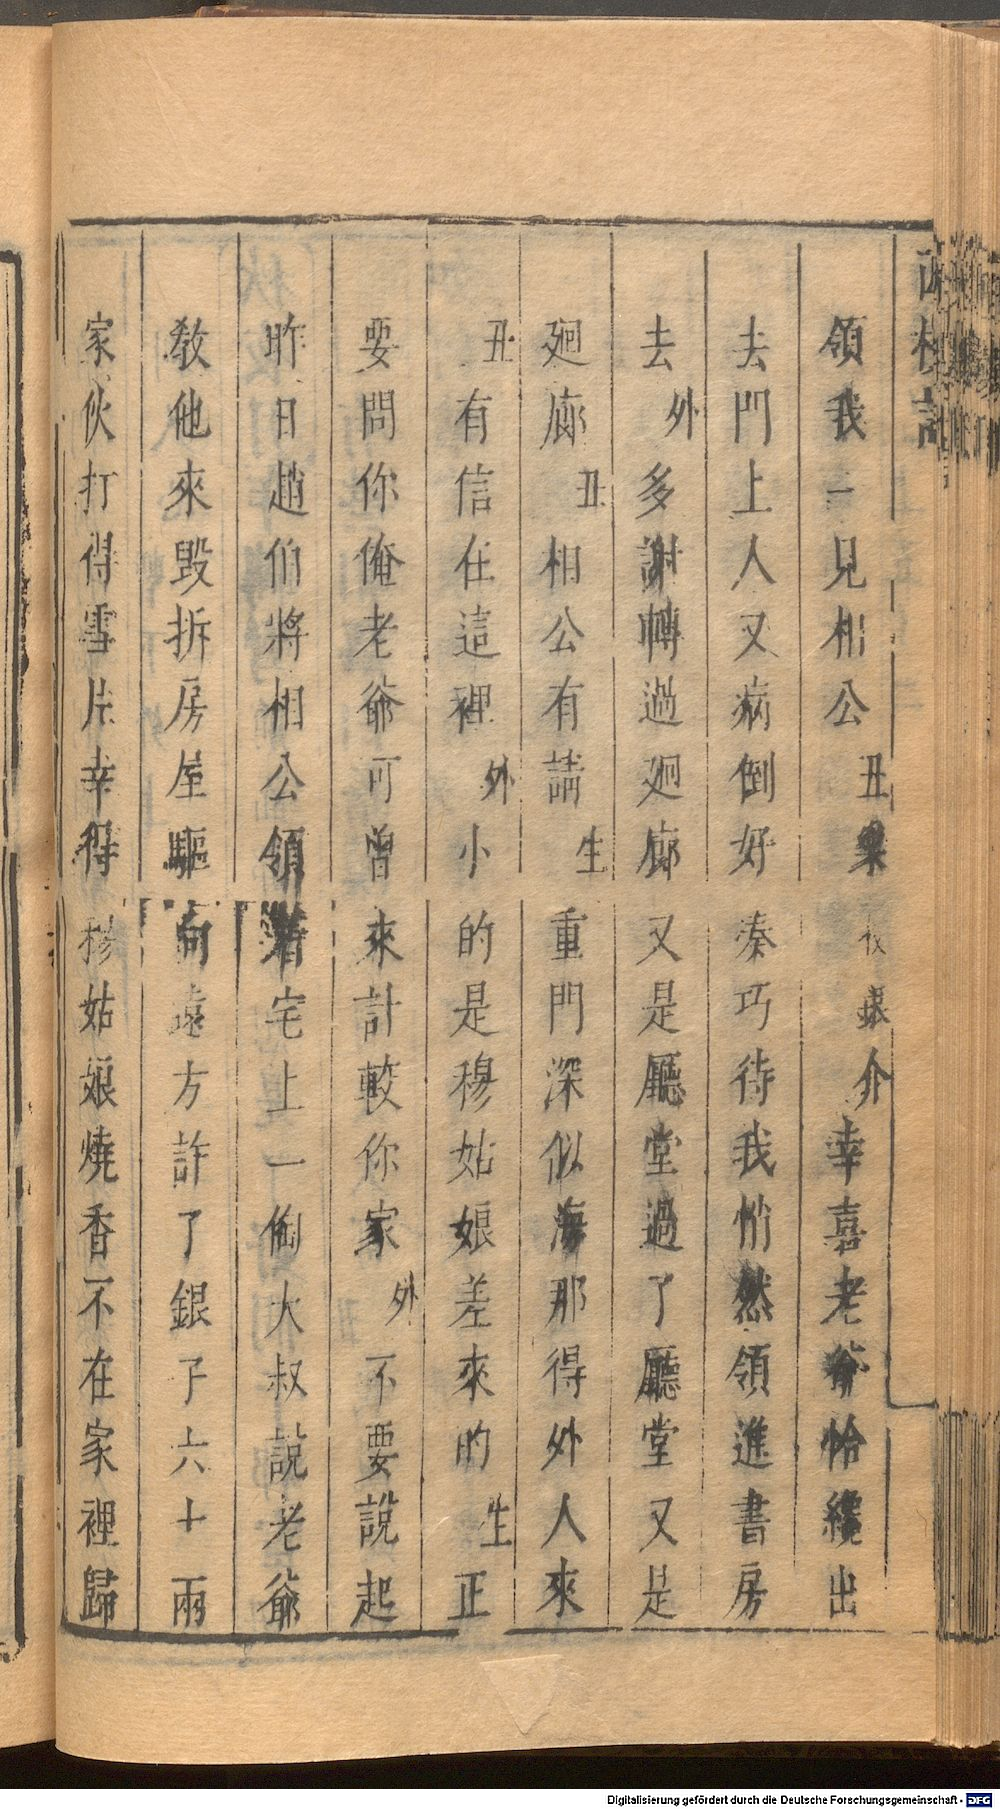 西樓記
領我一見相公丑㮣收銀介幸喜老爺恰纔出
去門上人又病倒好湊巧待我悄然領進書房
去外多謝轉過廻廊又是廳堂過了廳堂又是
廻廊丑相公有請生重門深似海那得外人來
丑有信在這裡外小的是穆姑娘差來的生正
要問你俺老爺可曾來計較你家外不要說起
昨日趙伯將相公領着宅上一個大叔說老爺
教他來毀拆房屋驅向遠方許了銀子六十兩
家伙打得雪片幸得穆姑娘燒香不在家裡歸
Digitalisierung gefördert durch die Deutsche Forschungsgemeinschaft - DFG